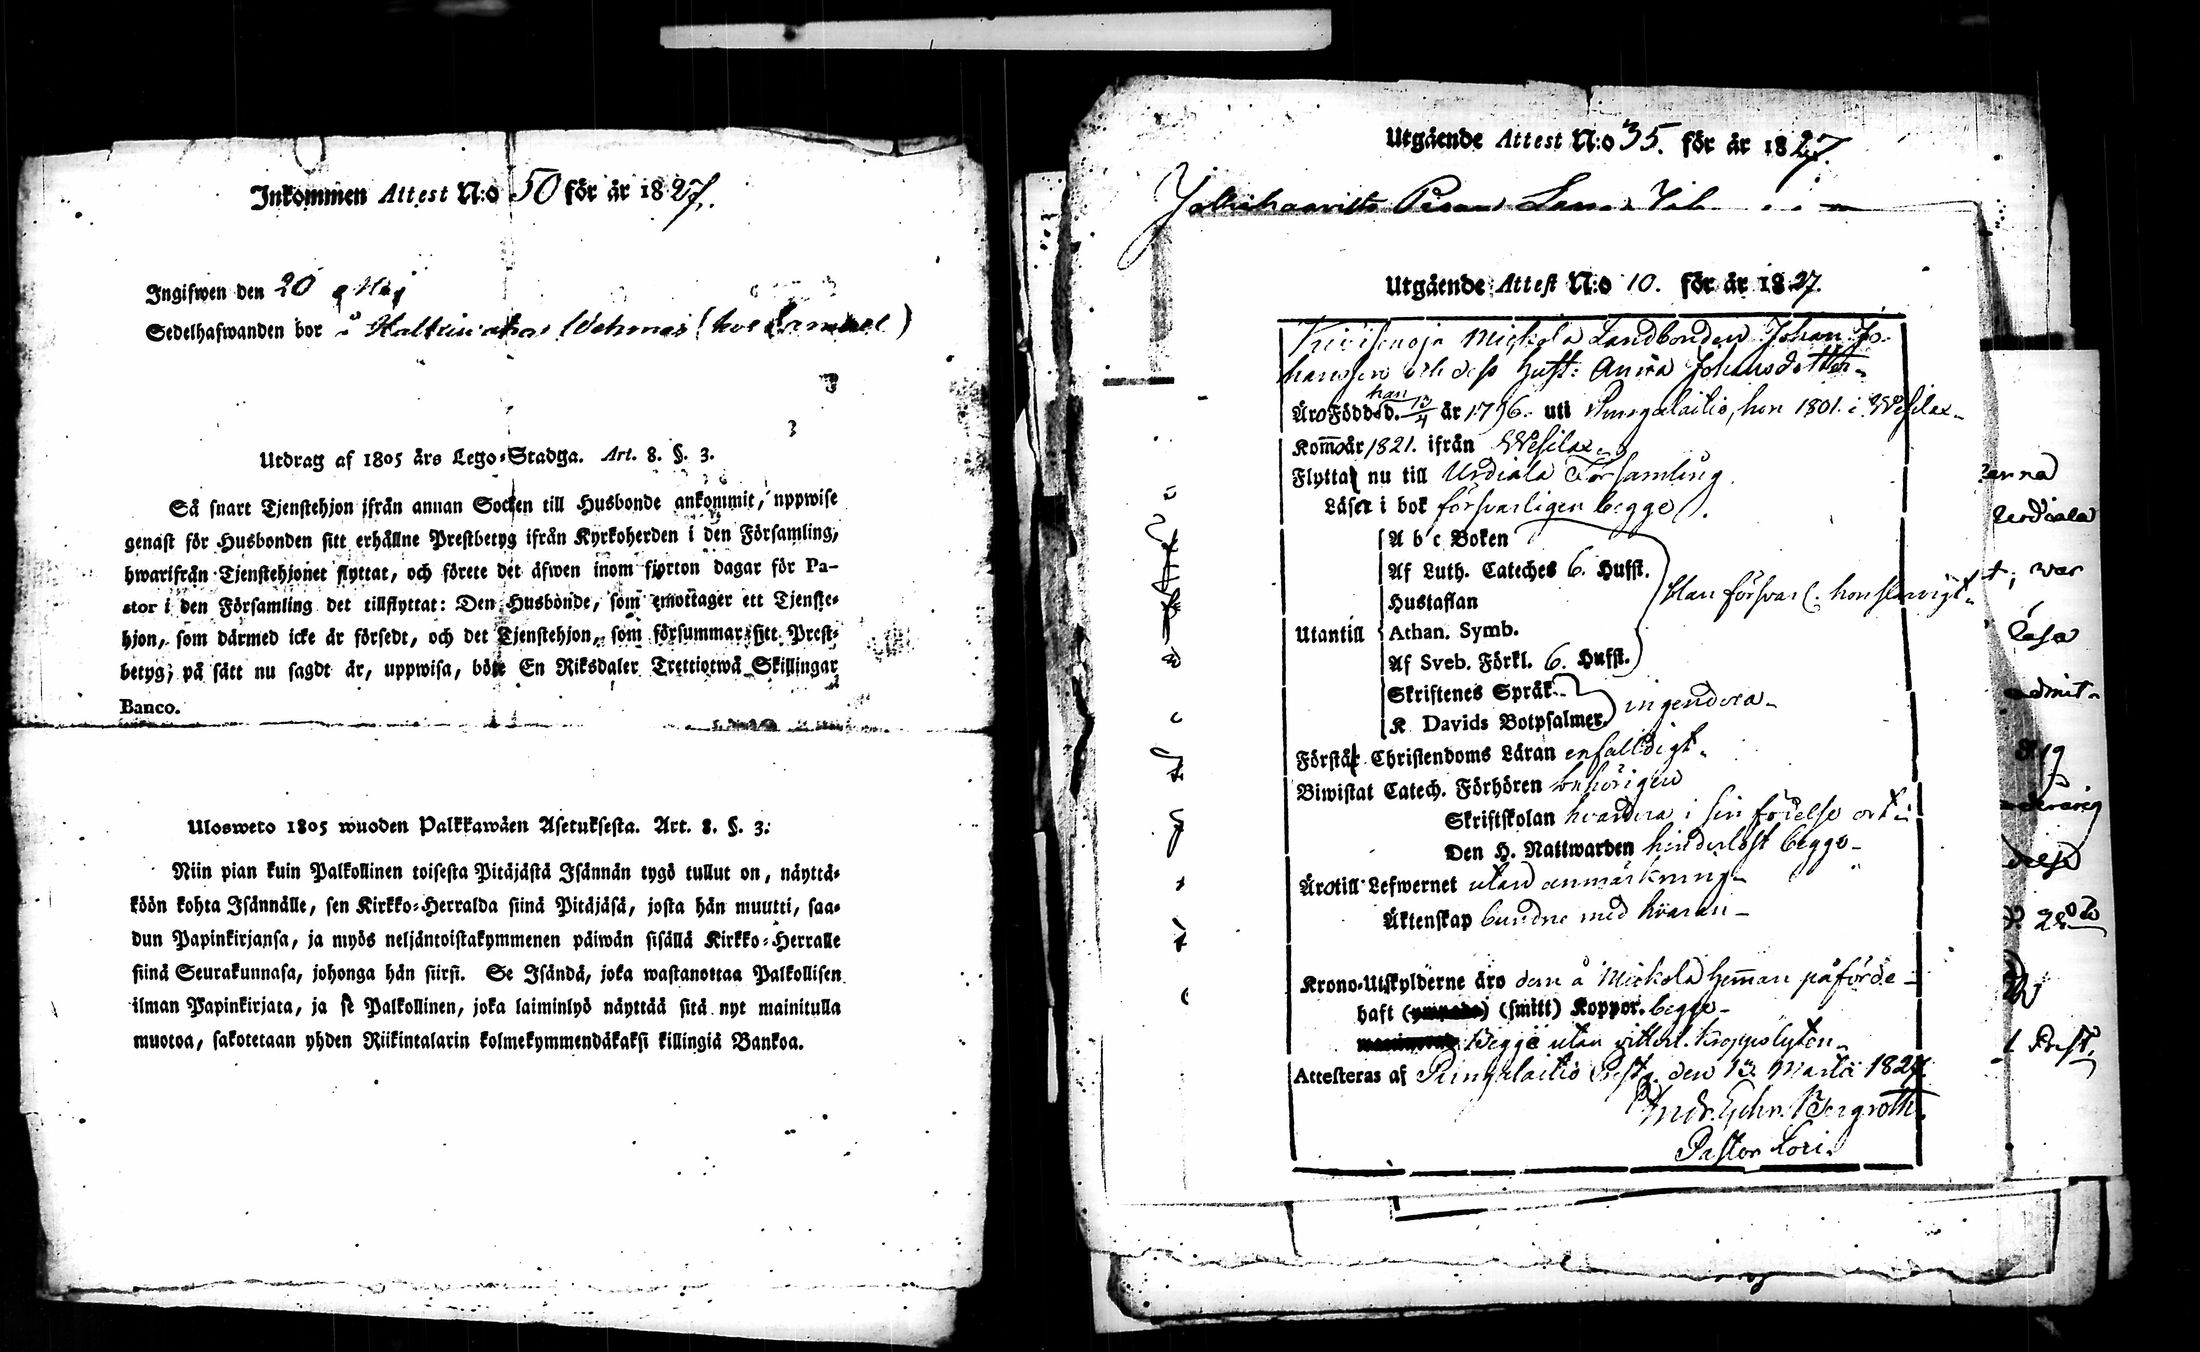 Inkommen Attest N:o 50 för år 1827.
Ingifwen den 20 Maj
Sedelhafwanden bor å
Utdrag af 1805 års Lego-Stadga. Art. 8. §. 3.
Så snart Tjenstehjon ifrån annan Socken till Husbonde ankommit, uppwise
genast för Husbonden sitt erhållne Prestbetyg ifrån Kyrkoherden i den Församling,
hwarifrån Tjenstehjonet flyttat, och förete det äfwen inom fjorton dagar för Pa-
stor i den Församling det tillflyttat: Den Husbonde, som emottager ett Tjenste-
hjon, som därmed icke är försedt, och det Tjenstehjon, som försummar sitt Prest-
betyg, på sätt nu sagdt är, uppwisa, böte En Riksdaler Trettiotwå Skillingar
Banco.
Ulosweto 1805 wuoden Palkkawäen Asetuksesta. Art. 8. §. 3:
Niin pian kuin Palkollinen toisesta Pitäjästä Isännän tygö tullut on, näyttä-
köön kohta Isännälle, sen Kirkko-Herralda siinä Pitäjäsä, josta hän muutti, saa-
dun Papinkirjansa, ja myös neljäntoistakymmenen päiwän sisällä Kirkko-Herralle
siinä Seurakunnasa, johonga hän siirsi. Se Isändä, joka wastanottaa Palkollisen
ilman Papinkirjata, ja se Palkollinen, joka laiminlyö näyttää sitä nyt mainitulla
muotoa, sakotetaan yhden Riikintalarin kolmekymmendäkaksi killingiä Bankoa.
Utgående Attest N:o 35. för år 1827.
Utgående Attest N:o 10. för år 1827.
Mickola Landbonden Johan Jo-
hansson och dess Hust: Anna Johansdotter
Äro Född d. han 13/4 år 1796. uti Pungalaitio, hon 1801. i Wesilax
Kom̅o år 1821. ifrån Wesilax
Flytta nu till Urdiala Församling
Läser i bok försvarligen begge
A b c Boken
Af Luth. Cateches 6. Hufst.
Hustaflan
Utantill Athan. Symb.
Af Sveb. Förkl. 6. Hufst.
Han försvarl. hon slarvigt
Skriftenes Språk
K Davids Botpsalmer
ingendera
Förstår Christendoms Läran enfalldigt
Biwistat Catech. Förhören behörigen
Skriftskolan hvardera i sin födelse ort
Den H. Nattwarden hinderlöst begge
Äro till Lefwernet utan anmärkning
Äktenskap bundne med hvaran
Krono-Utskylderne äro dem å Mickola hem̅an påförde
haft (smitt) Koppor. begge
Begge utan kroppslyten
Attesteras af Pungalaitio Prestg. den 13 Martii 1827.
Bergroth.
Pastor Loci.
Urdiala
war
läsa